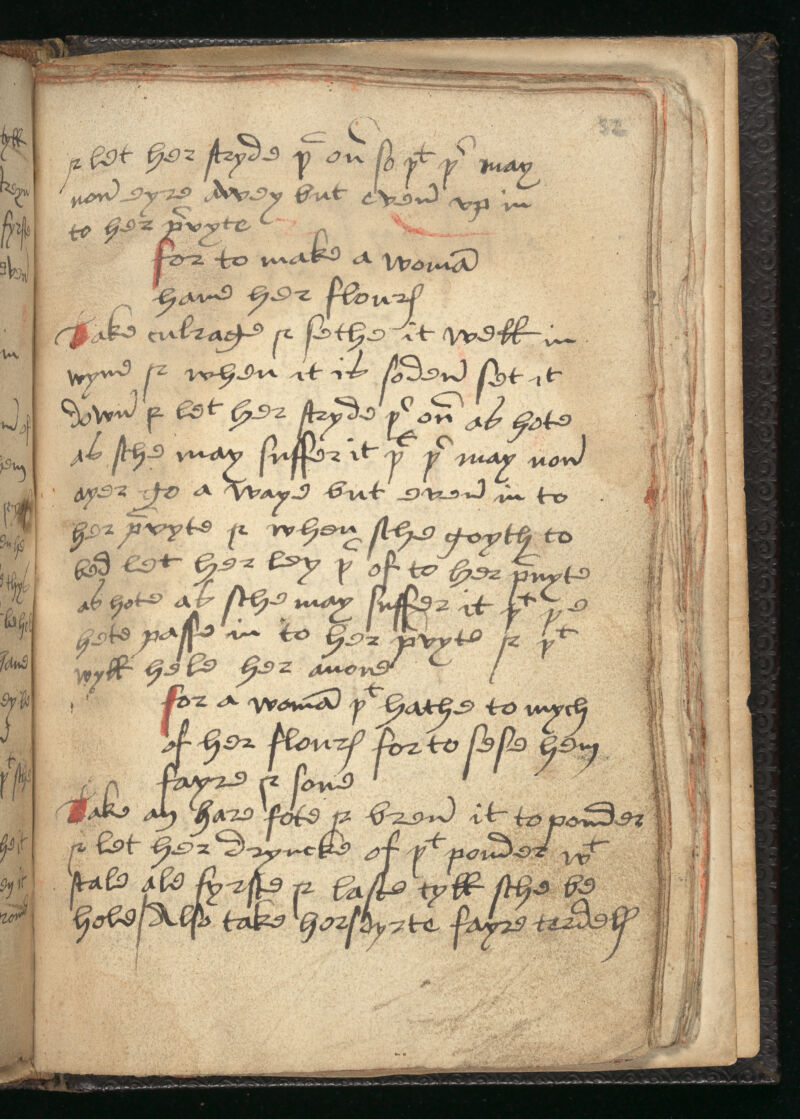 32
& let her stryde þ͛ on̄ so þᵗ þ͛ may
non̄ eyre awey but even̄ vp in
to her p̄vyte
for to make a womā
haue her flourꝭ
Take culrage & sethe it well in
wyne & when it is soden̄ set it
down̄ & let her stryde þ͛ on̄ as hote
as sche may suffer it þᵗ þ͛ may non̄
ayer go a waye but even̄ in to
her p̄vyte & when sche goyth to
bed let her ley þ͛ of to her p̄uyte
as hote as sche may suffer it þᵗ þe
hete passe in to her p̄vyte & þᵗ
wyll hele her anone
for a womā þᵗ hathe to mych
of her flourꝭ for to sese hem
fayre & sone
Take an hare fote & bren̄ it to pouder
& let her dryncke of þᵗ pouder wᵗ
stale ale fyrste & laste tyll sche be
hole / Also take horsdyrte fayre terdellꝭ